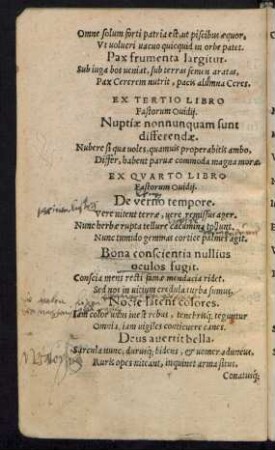 Omne solum forti patria est, ut piscibus æquor,
Vt volucri vacuo quicquid in orbe patet.
Pax frumenta largitur.
Sub iuga bos veniat, sub terras semen aratas,
Pax Cererem nutrit, pacis alumna Ceres.
EX TERTIO LIBRO
Fastorum Ouidij.
Nuptiæ nonnunquam sunt
differendæ.
Nubere si qua voles, quamuis properabitis ambo,
Differ, habent paruæ commoda magna moræ.
EX QVARTO LIBRO
Fastorum Ouidij.
De verno tempore.
Vere nitent terræ, vere remissus ager.
Nunc herbæ rupta tellure cacumina tollunt,
Nunc tumido gemmas cortice palmes agit.
Bona conscientia nullius
oculos fugit.
Conscia mens recti famæ mendacia ridet.
Sed nos in vitium credula turba sumus.
Nocte latent colores.
Iam color unus inest rebus, tenebrisq; teguntur
Omnia, iam vigiles conticuere canes.
Deus auertit bella.
Sarcula nunc, durusq; bidens, & vomer aduncus,
Ruris opes niteant, inquinet arma situs.
Conatusq;